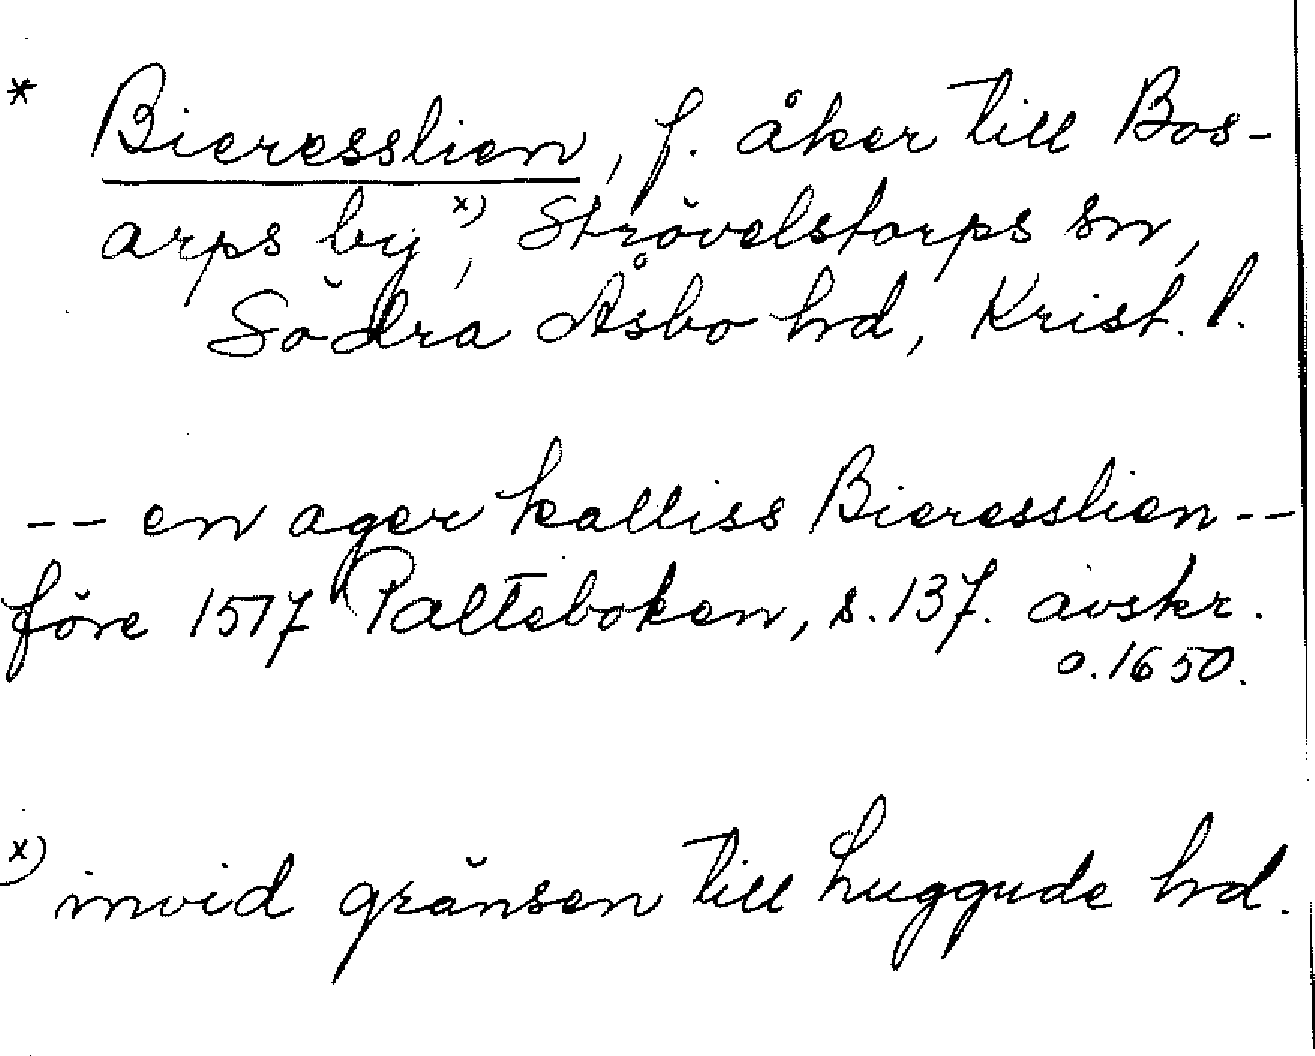 * Bieresslien, f. åker till Bos-
arps by x), Strövelstorps sn,
Södra Åsbo hd, Krist. l.
-- en ager kalliss Bieresslien --
före 1517 Palteboken, s. 137. avskr.
o. 1650.
x) invid gränsen till Luggude hd.